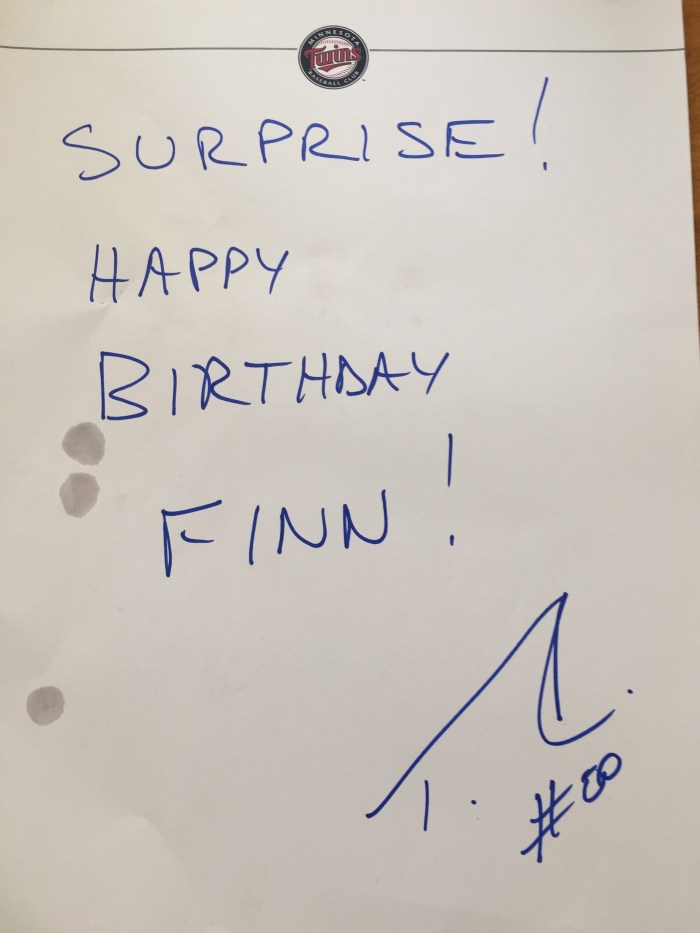 MINNESOTA
Twins
BASEBALL CLUB
SURPRISE!
HAPPY
BIRTHDAY
FINN!
T.C.
#00